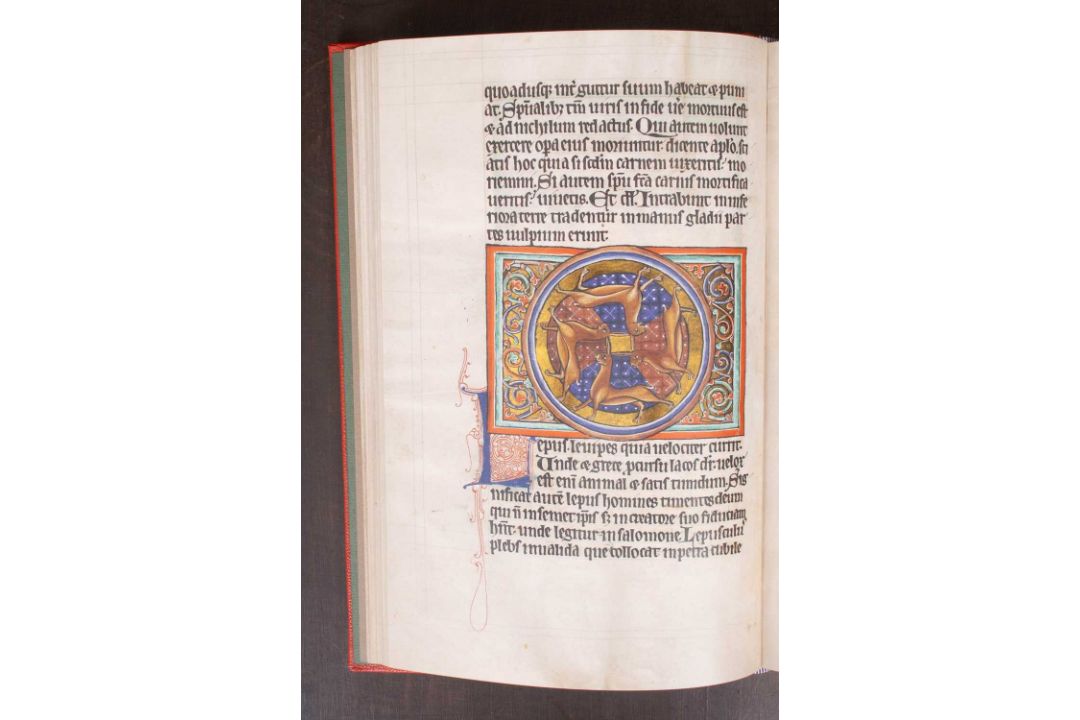 quoadusq; int' guttur suum habeat & puni
at. Sp̄ualib; tm̄ uiris in fide ū'e mortuus est
& ad nichilum redactus. Qui autem uolunt
exercere op̄a eius moriuntur. dicente ap̄lo. sci
atis hoc quia si sc̄dm carnem uixeritis: mo
riemini. Si autem sp̄u fc̄a carnis mortifica
ueritis: uiuetis. Et Intrabunt in infe
riora terre tradentur in manus gladii par
tes uulpium erunt.
Lepus. leuipes quia uelociter currit.
Unde & grece pcursu lacos dr̄. uelox
est eni animal & satis timidum. Sig
nificat autē lepus homines timentes deum
qui n̄ in semet ip̄is s; in creatore suo fiduciam
hn̄t. unde legitur in salomone. Lepusculū
plebs inualida que collocat in petra cubile